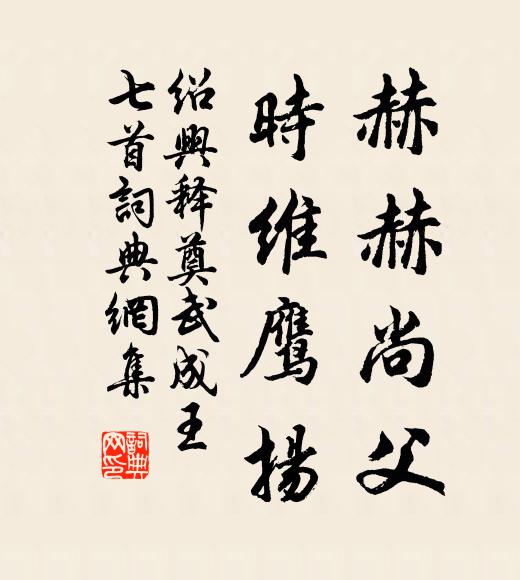 赫赫尚父
時維鹰揚
绍興释奠武成王
七首詞典網集
詞典網印